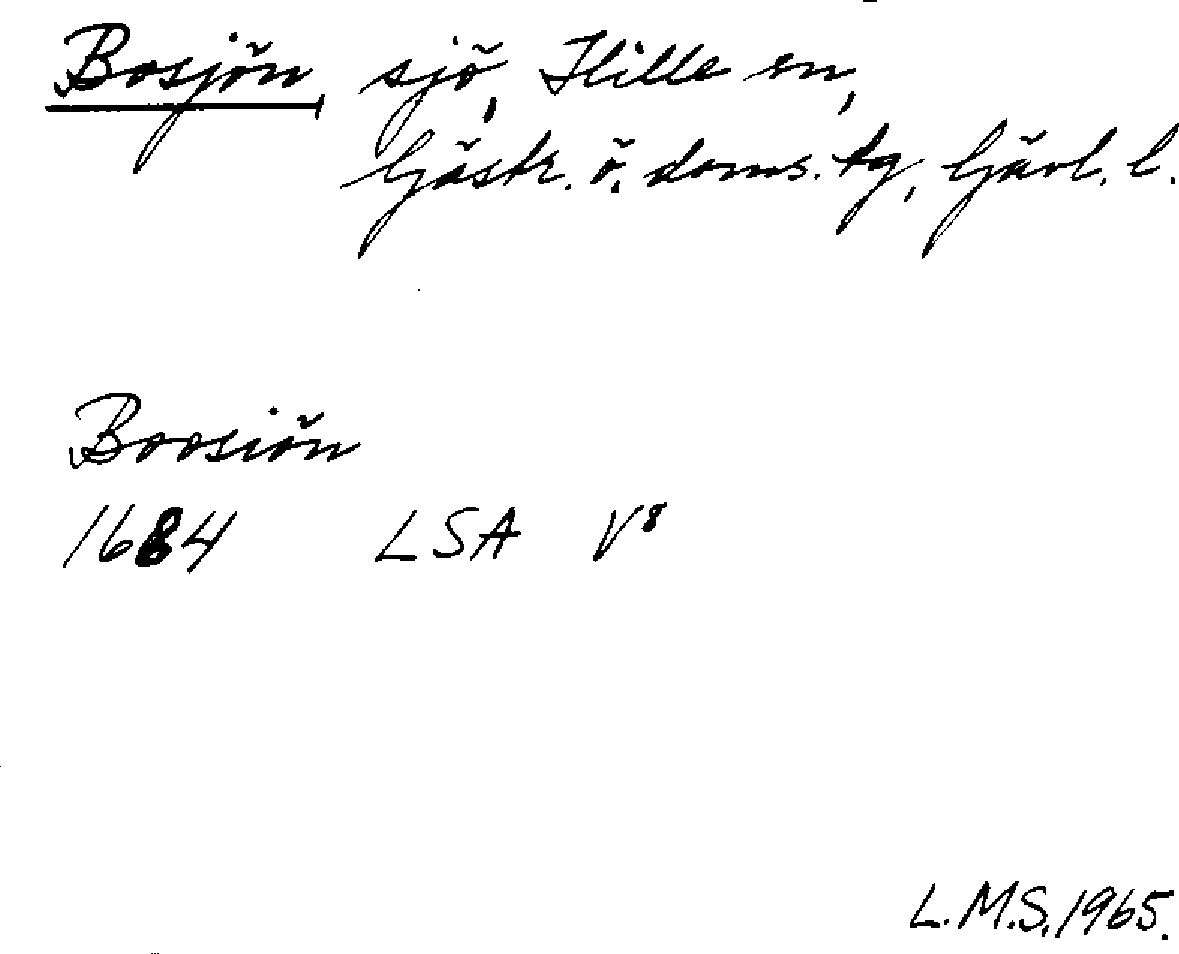 Bosjön, sjö, Hille sn,
Gästr. ö. doms. tg, Gävl. l.
Boosiön
1684 LSA V⁸
L.M.S. 1965.